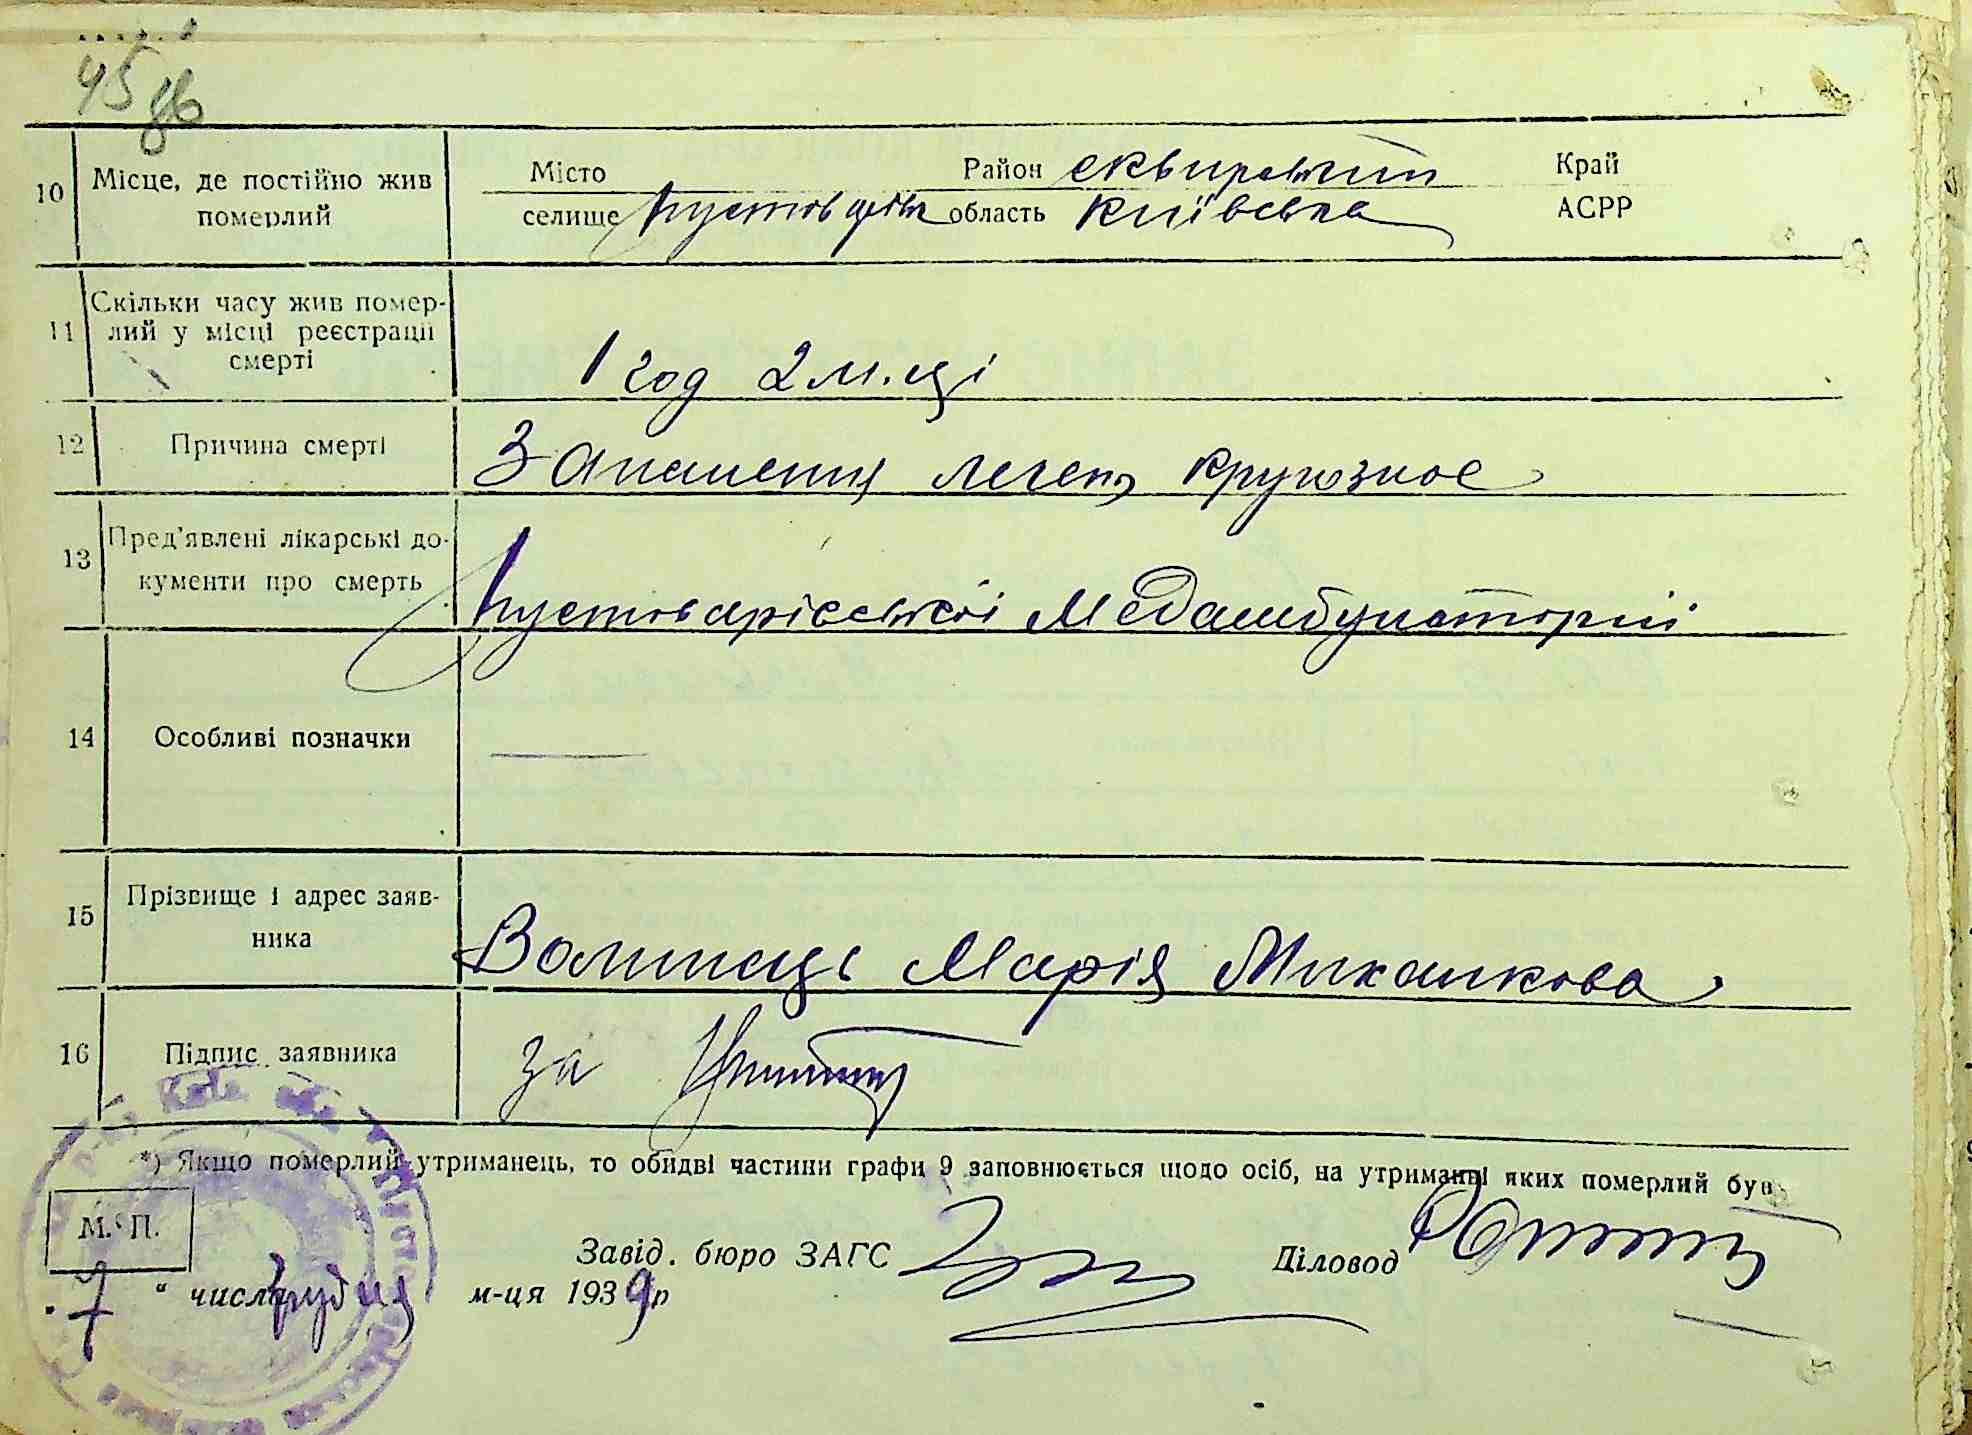 45 зв
10 Місце, де постійно жив померлий
Місто Район сквирський Край
селище пустоварівка область київська АСРР
11 Скільки часу жив помер-
лий у місці реєстрації
смерті
1 год 2 м.ці
12 Причина смерті Запалення легень крупозное
13 Пред'явлені лікарські до-
кументи про смерть
пустоварівської Медамбулаторіі
14 Особливі позначки —
15 Прізвище і адрес заяв-
ника
Волинець Марія
16 Підпис заявника за
*) Якщо померлий утриманець, то обидві частини графи 9 заповнюється щодо осіб, на утриманні яких померлий був
М. П.
Завід. бюро ЗАГС Діловод
„7“ числа грудня м-ця 1939 р